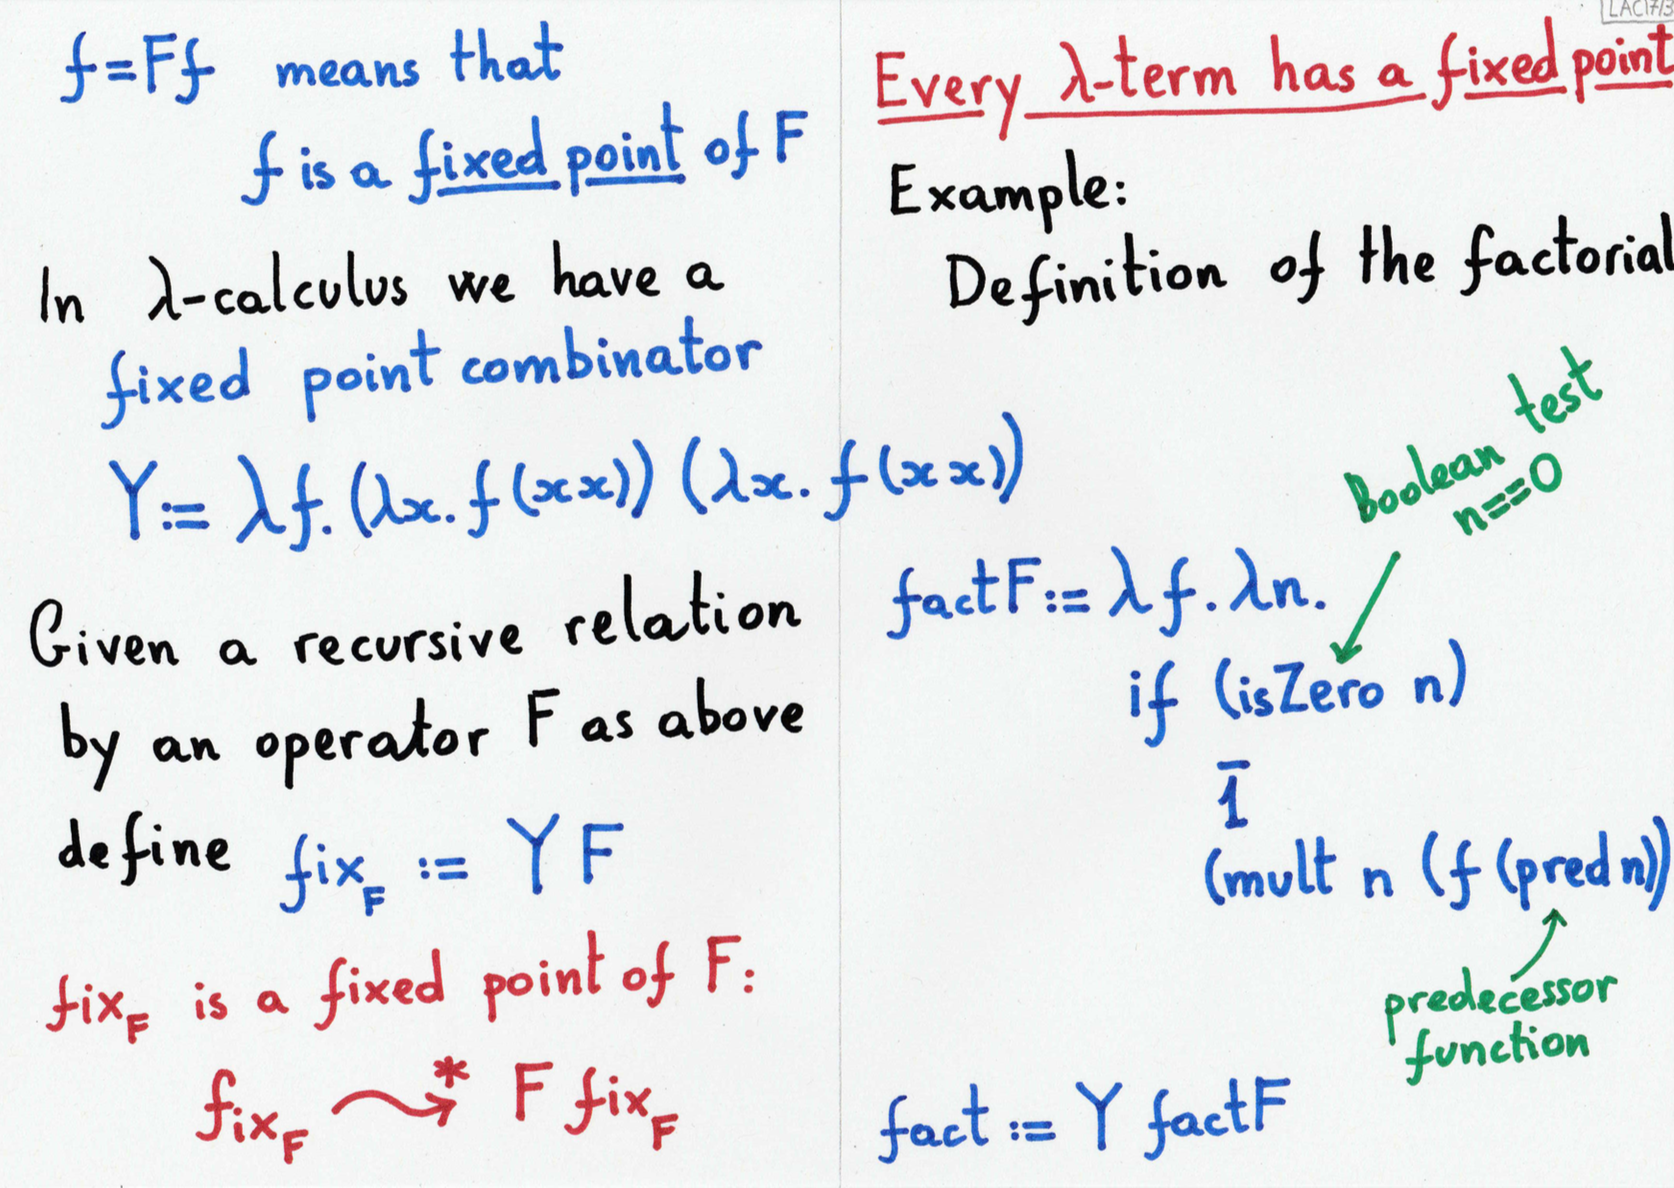 f = F f means that
f is a fixed point of F
In λ-calculus we have a
fixed point combinator
Y := λf. (λx. f (x x)) (λx. f (x x))
Given a recursive relation
by an operator F as above
define fix_F := Y F
fix_F is a fixed point of F:
fix_F ⤳* F fix_F
LAC17/3
Every λ-term has a fixed point
Example:
Definition of the factorial
Boolean test
n==0
factF := λf. λn.
if (isZero n)
1̄
(mult n (f (pred n))
predecessor
function
fact := Y factF